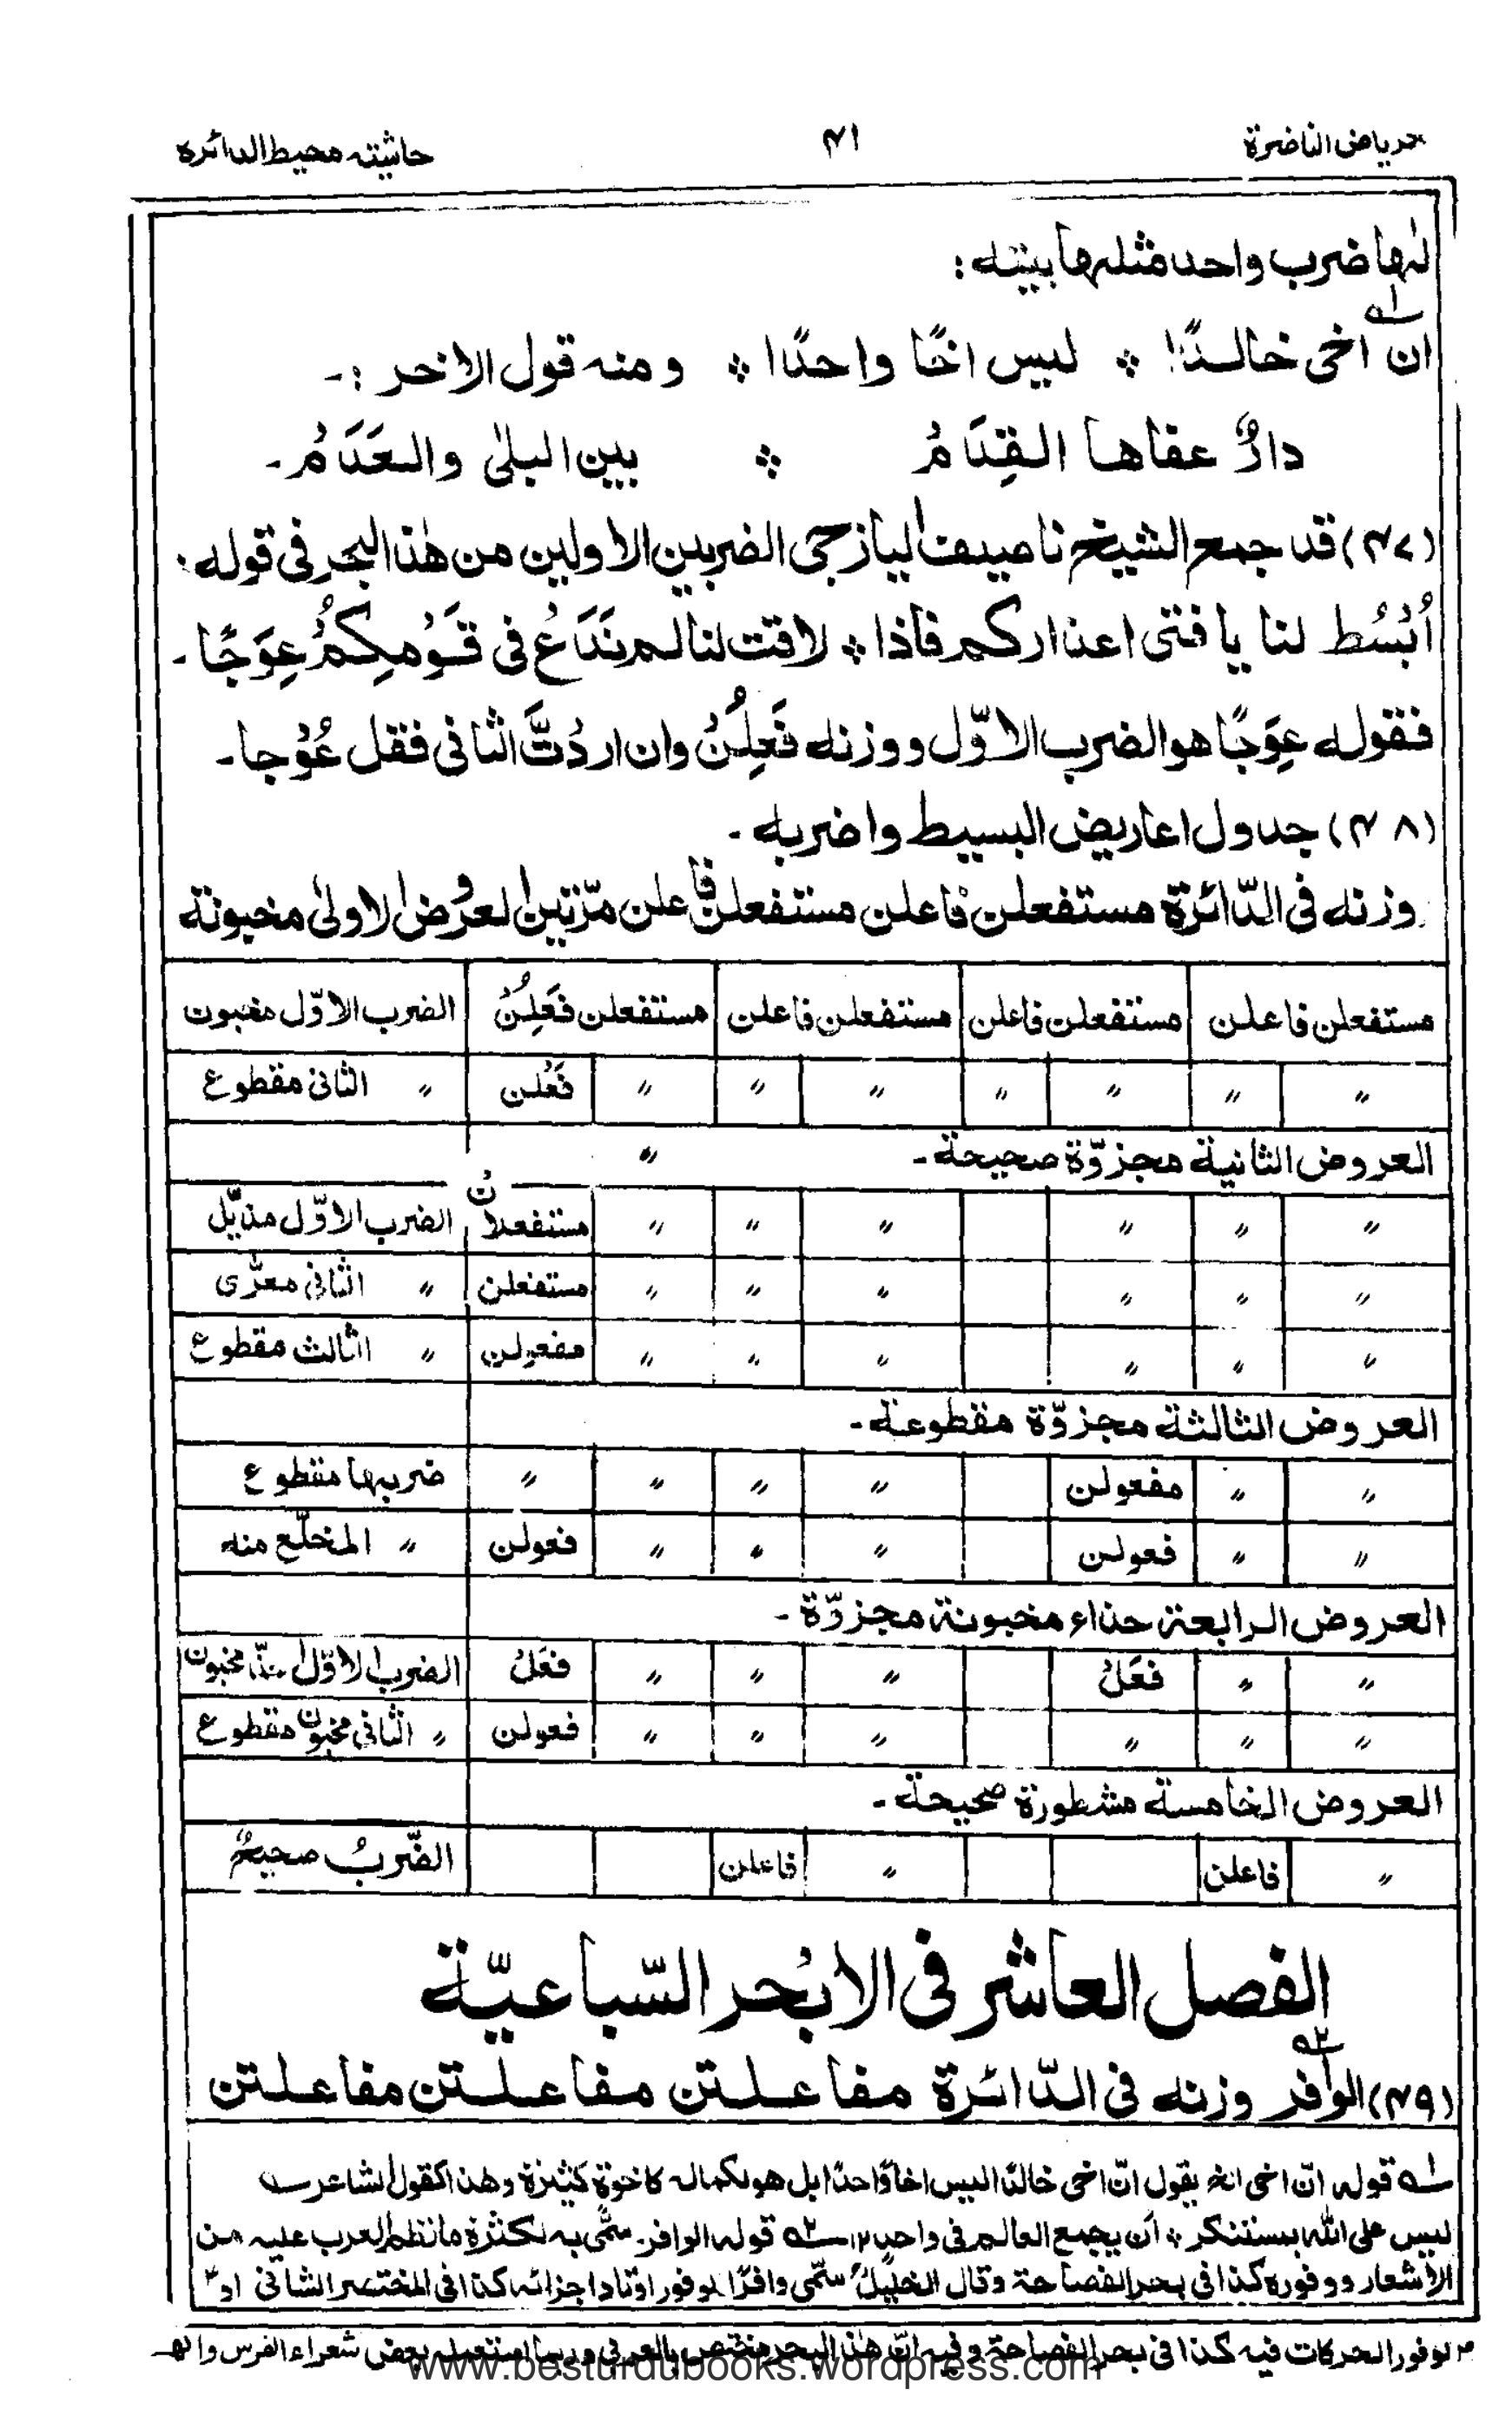 الرياض الناضرة ۴۱ حاشيته محيط الدائره
لها ضرب واحد مثلها بيته :
ان اخى خالدًا ٭ ليس اخًا واحدًا ٭ ومنه قول الاخر :-
دارٌ عفاها القِدَمُ ٭ بين البلىٰ والعَدَمُ -
(۴۷) قد جمع الشيخ ناصيف اليازجى الضربين الاولين من هٰذا البحر فى قوله :
اُبْسُط لنا يا فتى اعذاركم فاذا ٭ لاقت لنا لم نَدَعْ فى قَوْمِكُمْ عِوَجًا -
فقوله عِوَجًا هو الضرب الاوّل ووزنه فَعِلُنْ وان اردْتَّ الثانى فقل عُوْجا -
(۴۸) جدول اعاريض البسيط واضربه -
وزنه فى الدّائرة مستفعلن فاعلن مستفعلن فاعلن مرّتين العروض الاولىٰ مخبونة
مستفعلن فاعلن مستفعلن فاعلن مستفعلن فاعلن مستفعلن فَعِلُنْ الضرب الاوّل مخبون
〃 〃 〃 〃 〃 〃 〃 فَعْلن 〃 الثانى مقطوع
العروض الثانية مجزوّة صحيحة - 〃
〃 〃 〃 〃 〃 〃 مستفعلانْ الضرب الاوّل مذيّل
〃 〃 〃 〃 〃 〃 مستفعلن 〃 الثانى معرّى
〃 〃 〃 〃 〃 〃 مفعولن 〃 الثالث مقطوع
العروض الثالثة مجزوّة مقطوعة -
〃 〃 مفعولن 〃 〃 〃 〃 ضربها مقطوع
〃 〃 فعولن 〃 〃 〃 فعولن 〃 المخلّع منه
العروض الرابعة حذاء مخبونة مجزوّة -
〃 〃 فَعَلْ 〃 〃 〃 فَعَلْ الضرب الاوّل احذّ مخبون
〃 〃 〃 〃 〃 〃 فعولن 〃 الثانى مخبون مقطوع
العروض الخامسة مشطورة صحيحة -
〃 فاعلن 〃 فاعلن الضّربُ صحيحٌ
الفصل العاشر فى الابْحر السّباعيّة
(۴۹) الوافر وزنه فى الدّائرة مفاعلتن مفاعلتن مفاعلتن
۱ قوله انّ اخى الخ يقول انّ اخى خالدًا ليس اخاً واحدًا بل هو لكماله كاخوة كثيرة وهٰذا كقول الشاعر
ليس على الله بمستنكر ٭ اَن يجمع العالم فى واحد ۱۲ ۲ قوله الوافر. سمّى به لكثرة ما نظم العرب عليه من
الأشعار ووفوره كذا فى بحر الفصاحة وقال الخليلؒ سمّى وافرًا لوفور اوتاد اجزائه كذا فى المختصر الشافى او
لوفور الحركات فيه كذا فى بحر الفصاحة وفيه انّ هٰذا البحر مختص بالعربى وربما استعمله بعض شعراء الفرس
www.besturdubooks.wordpress.com